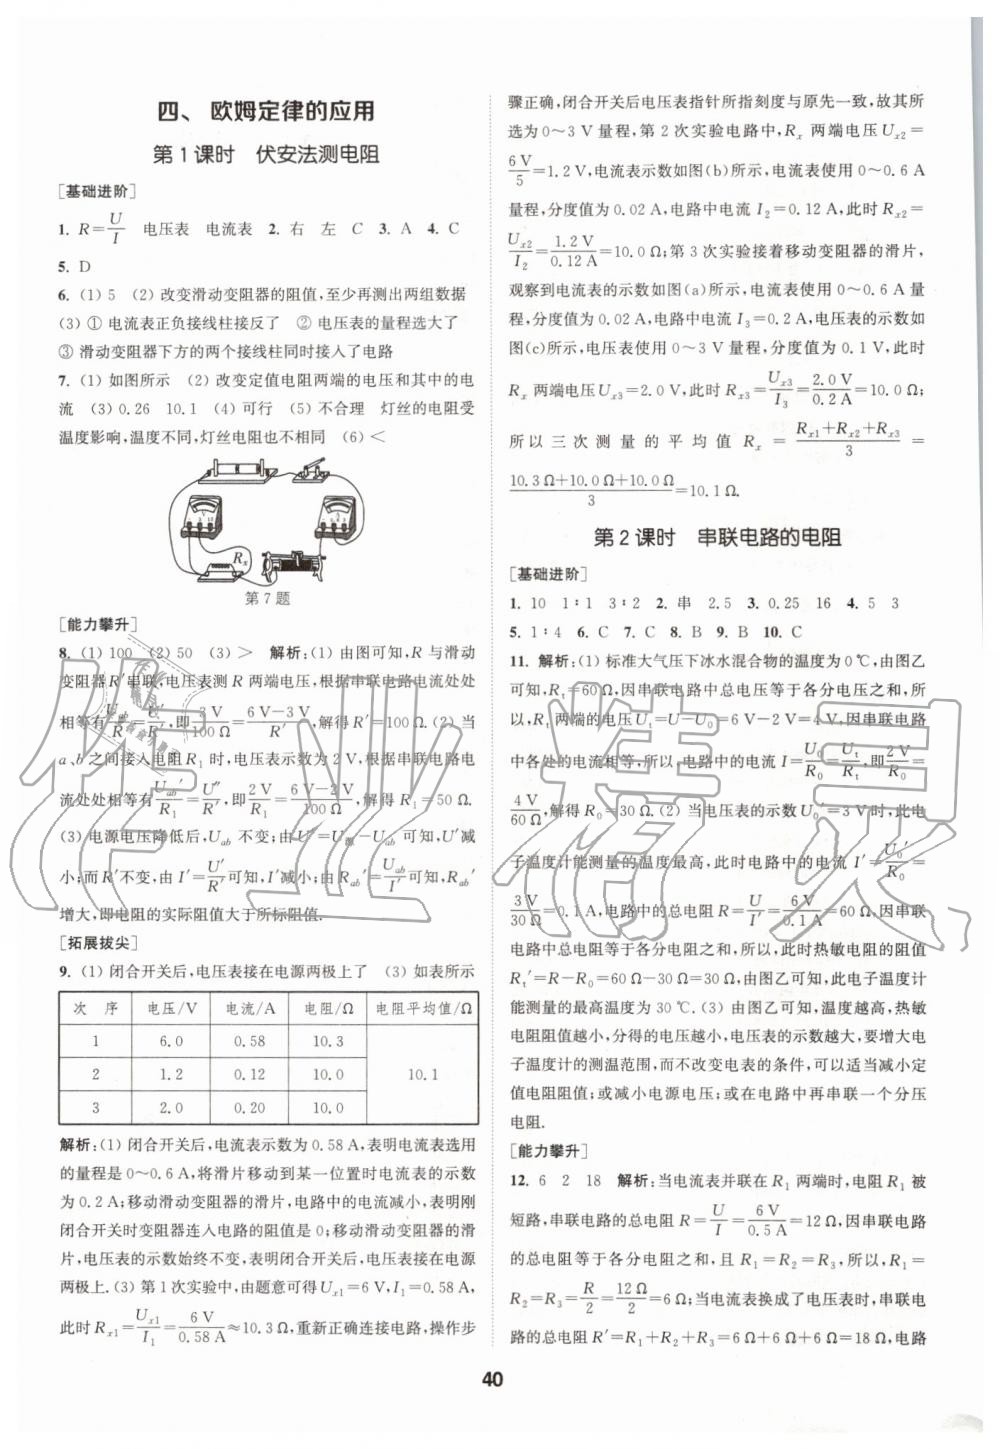 四、 欧姆定律的应用
第 1 课时　伏安法测电阻
[基础进阶]
1. R=U/I　电压表　电流表　2. 右　左　C　3. A　4. C
5. D
6. (1) 5　(2) 改变滑动变阻器的阻值,至少再测出两组数据
(3) ① 电流表正负接线柱接反了　② 电压表的量程选大了
③ 滑动变阻器下方的两个接线柱同时接入了电路
7. (1) 如图所示　(2) 改变定值电阻两端的电压和其中的电
流　(3) 0.26　10.1　(4) 可行　(5) 不合理　灯丝的电阻受
温度影响,温度不同,灯丝电阻也不相同　(6) <
Rx
第 7 题
[能力攀升]
8. (1) 100　(2) 50　(3) >　解析:(1) 由图可知,R 与滑动
变阻器R′串联,电压表测 R 两端电压,根据串联电路电流处处
相等有U/R=U′/R′,即3 V/100 Ω=6 V-3 V/R′,解得R′=100 Ω. (2) 当
a、b 之间接入电阻R1 时,电压表示数为 2 V,根据串联电路电
流处处相等有Uab′/R1=U″/R′,即2 V/R1=6 V-2 V/100 Ω,解得 R1=50 Ω.
(3) 电源电压降低后,Uab 不变;由U′=U源-Uab 可知,U′减
小;而R′不变,由 I′=U′/R′可知,I′减小;由Rab′=Uab/I′可知,Rab′
增大,即电阻的实际阻值大于所标阻值.
[拓展拔尖]
9. (1) 闭合开关后,电压表接在电源两极上了　(3) 如表所示
次　序　电压/V　电流/A　电阻/Ω　电阻平均值/Ω
1　6.0　0.58　10.3
2　1.2　0.12　10.0　10.1
3　2.0　0.20　10.0
解析:(1) 闭合开关后,电流表示数为 0.58 A,表明电流表选用
的量程是 0～0.6 A,将滑片移动到某一位置时电流表的示数
为 0.2 A;移动滑动变阻器的滑片,电路中的电流减小,表明刚
闭合开关时变阻器连入电路的阻值是 0;移动滑动变阻器的滑
片,电压表的示数始终不变,表明闭合开关后,电压表接在电源
两极上. (3) 第 1 次实验中,由题意可得Ux1=6 V,I1=0.58 A,
此时 Rx1=Ux1/I1=6 V/0.58 A≈10.3 Ω,重新正确连接电路,操作步
骤正确,闭合开关后电压表指针所指刻度与原先一致,故其所
选为 0～3 V 量程,第 2 次实验电路中,Rx 两端电压 Ux2=
6 V/5=1.2 V,电流表示数如图(b)所示,电流表使用 0～0.6 A
量程,分度值为 0.02 A,电路中电流 I2=0.12 A,此时 Rx2=
Ux2/I2=1.2 V/0.12 A=10.0 Ω;第 3 次实验接着移动变阻器的滑片,
观察到电流表的示数如图(a)所示,电流表使用 0～0.6 A 量
程,分度值为 0.02 A,电路中电流 I3=0.2 A,电压表的示数如
图(c)所示,电压表使用 0～3 V 量程,分度值为 0.1 V,此时
Rx 两端电压Ux3=2.0 V,此时 Rx3=Ux3/I3=2.0 V/0.2 A=10.0 Ω;
所以三次测量的平均值 Rx=Rx1+Rx2+Rx3/3=
10.3 Ω+10.0 Ω+10.0 Ω/3=10.1 Ω.
第 2 课时　串联电路的电阻
[基础进阶]
1. 10　1∶1　3∶2　2. 串　2.5　3. 0.25　16　4. 5　3
5. 1∶4　6. C　7. C　8. B　9. B　10. C
11. 解析:(1) 标准大气压下冰水混合物的温度为 0 ℃,由图乙
可知,Rt=60 Ω,因串联电路中总电压等于各分电压之和,所
以,Rt 两端的电压Ut=U-U0=6 V-2 V=4 V,因串联电路
中各处的电流相等,所以,电路中的电流 I=U0/R0=Ut/Rt,即2 V/R0=
4 V/60 Ω,解得 R0=30 Ω. (2) 当电压表的示数U0′=3 V 时,此电
子温度计能测量的温度最高,此时电路中的电流 I′=U0′/R0=
3 V/30 Ω=0.1 A,电路中的总电阻 R=U/I′=6 V/0.1 A=60 Ω,因串联
电路中总电阻等于各分电阻之和,所以,此时热敏电阻的阻值
Rt′=R-R0=60 Ω-30 Ω=30 Ω,由图乙可知,此电子温度计
能测量的最高温度为 30 ℃. (3) 由图乙可知,温度越高,热敏
电阻阻值越小,分得的电压越小,电压表的示数越大,要增大电
子温度计的测温范围,而不改变电表的条件,可以适当减小定
值电阻阻值;或减小电源电压;或在电路中再串联一个分压
电阻.
[能力攀升]
12. 6　2　18　解析:当电流表并联在 R1 两端时,电阻 R1 被
短路,串联电路的总电阻 R=U/I=6 V/0.5 A=12 Ω,因串联电路
的总电阻等于各分电阻之和,且 R1=R2=R3,所以,R1=
R2=R3=R/2=12 Ω/2=6 Ω;当电流表换成了电压表时,串联电
路的总电阻 R′=R1+R2+R3=6 Ω+6 Ω+6 Ω=18 Ω,电路
40
作业精灵